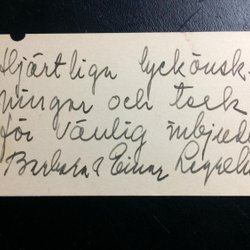 Hjärtliga lyckönsk-
ningar och tack
för vänlig inbjud
Barbara & Einar